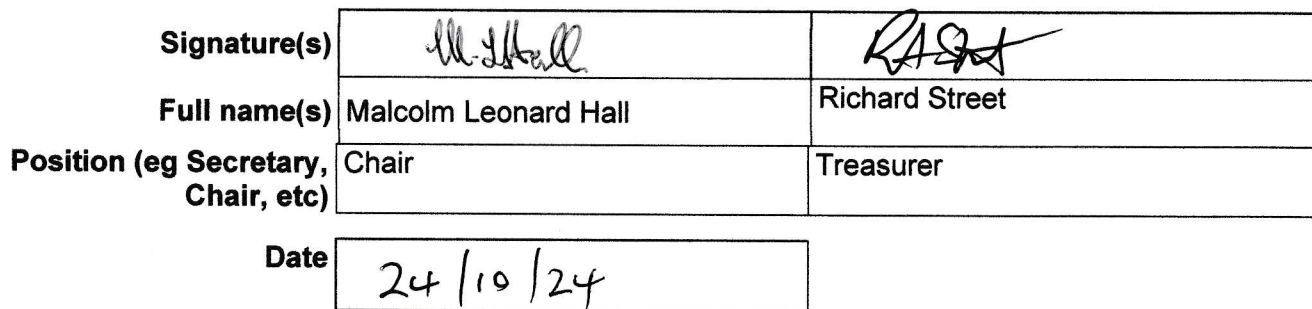 Signature(s) M. L Hall
Full name(s) Malcolm Leonard Hall Richard Street
Position (eg Secretary, Chair Treasurer
Chair, etc)
Date 24/10/24